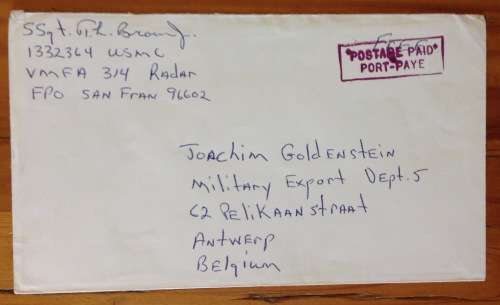 SSgt. T.h. Brown Jr.
1332364 USMC
VMFA 314 Radar
FPO SAN FRAN 96602
Free
POSTAGE PAID
PORT-PAYE
JOAchim GoldENStEIN
Military Export Dept. 5
62 PELIKAANStRAAT
ANTWERP
BElgium